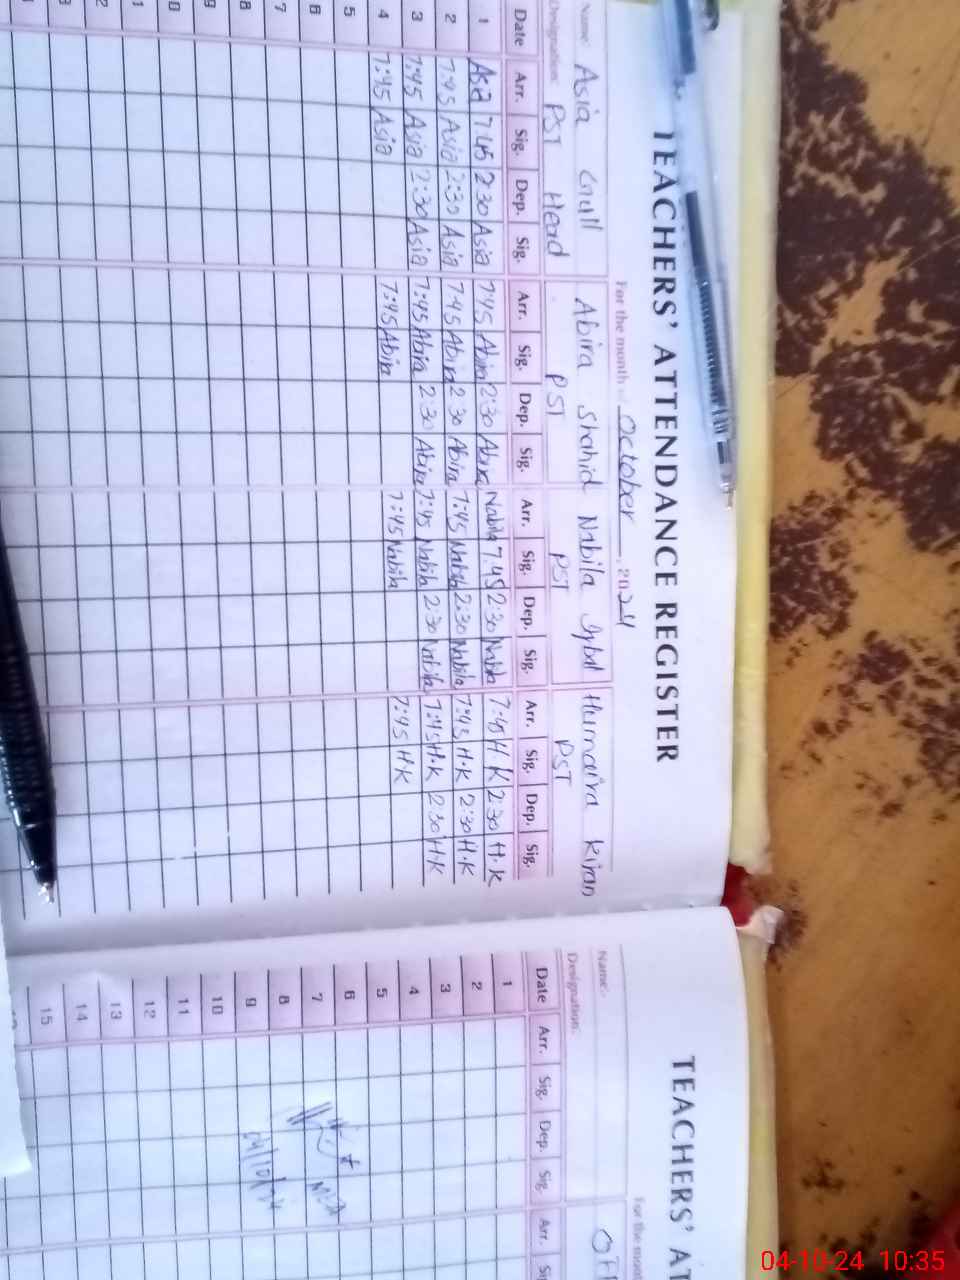 TEACHERS' ATTENDANCE REGISTER
For the month of October, 2024
Name: Asia Gull Abira Shahid Nabila Iqbal Humaira Kiran
Designation: PST Head PST PST PST
Date Arr. Sig. Dep. Sig. Arr. Sig. Dep. Sig. Arr. Sig. Dep. Sig. Arr. Sig. Dep. Sig.
1 Asia 7:45 2:30 Asia 7:45 Abira 2:30 Abira Nabila 7:45 2:30 Nabila 7:45 H.K 2:30 H.K
2 7:45 Asia 2:30 Asia 7:45 Abira 2:30 Abira 7:45 Nabila 2:30 Nabila 7:45 H.K 2:30 H.K
3 7:45 Asia 2:30 Asia 7:45 Abira 2:30 Abira 7:45 Nabila 2:30 Nabila 7:45 H.K 2:30 H.K
4 7:45 Asia 7:45 Abira 7:45 Nabila 7:45 H.K
5
6
7
8
TEACHERS' AT
For the month
Name:-
Designation:
Date Arr. Sig. Dep. Sig. Arr.
1
2
3
4
5
6
7
8
9
10
11
12
13
14
15
04-10-24 10:35